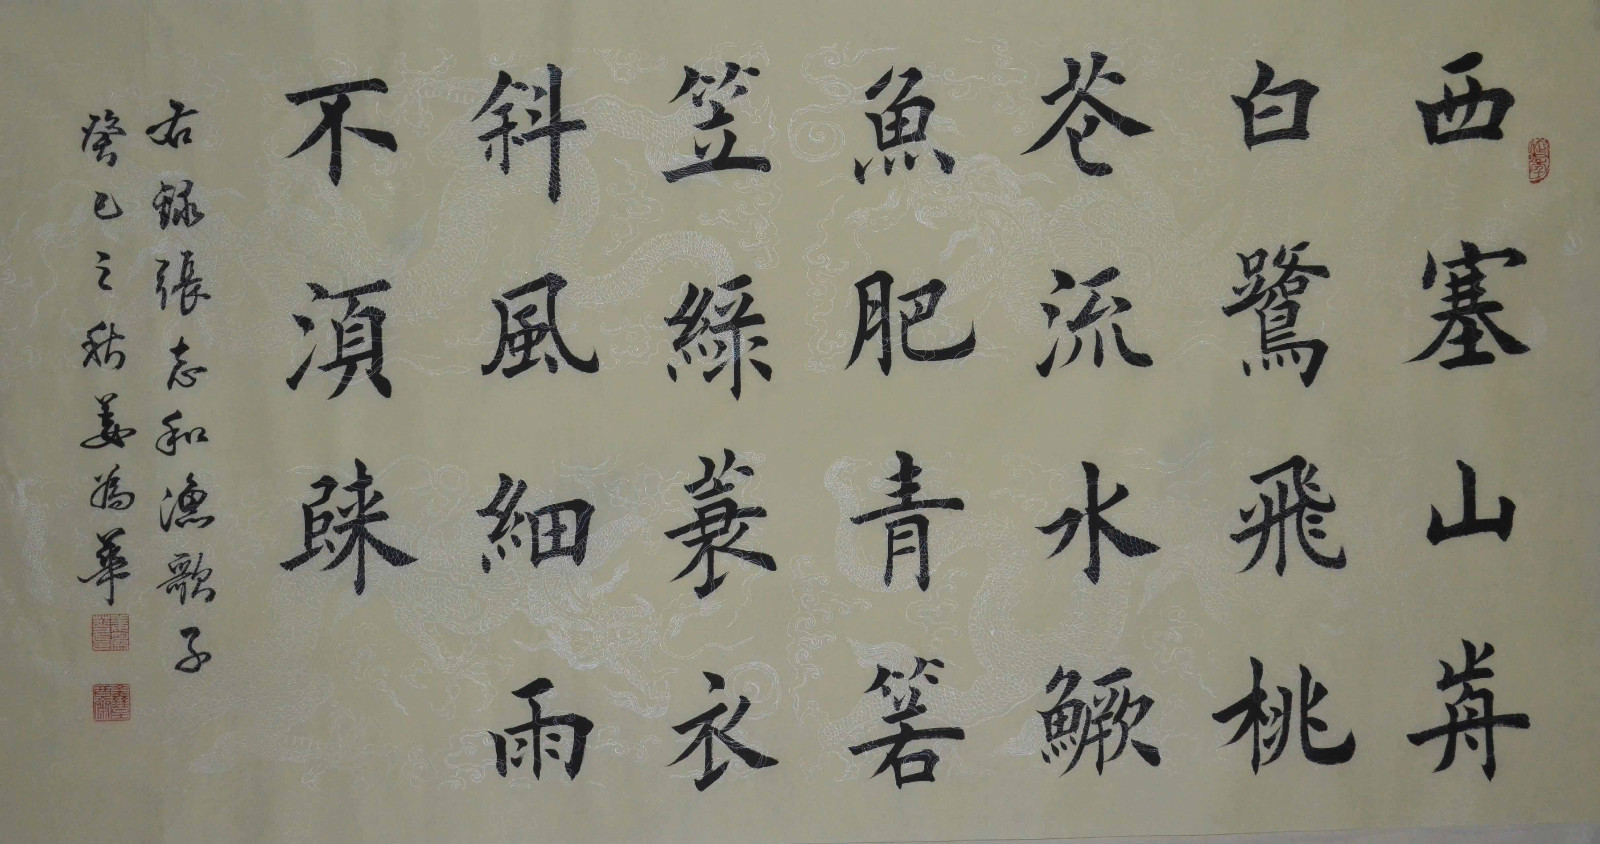 西塞山歬
白鷺飛桃
花流水鱖
魚肥青箬
笠綠蓑衣
斜風細雨
不湏歸
右録張志和漁歌子
癸巳之秋姜為華